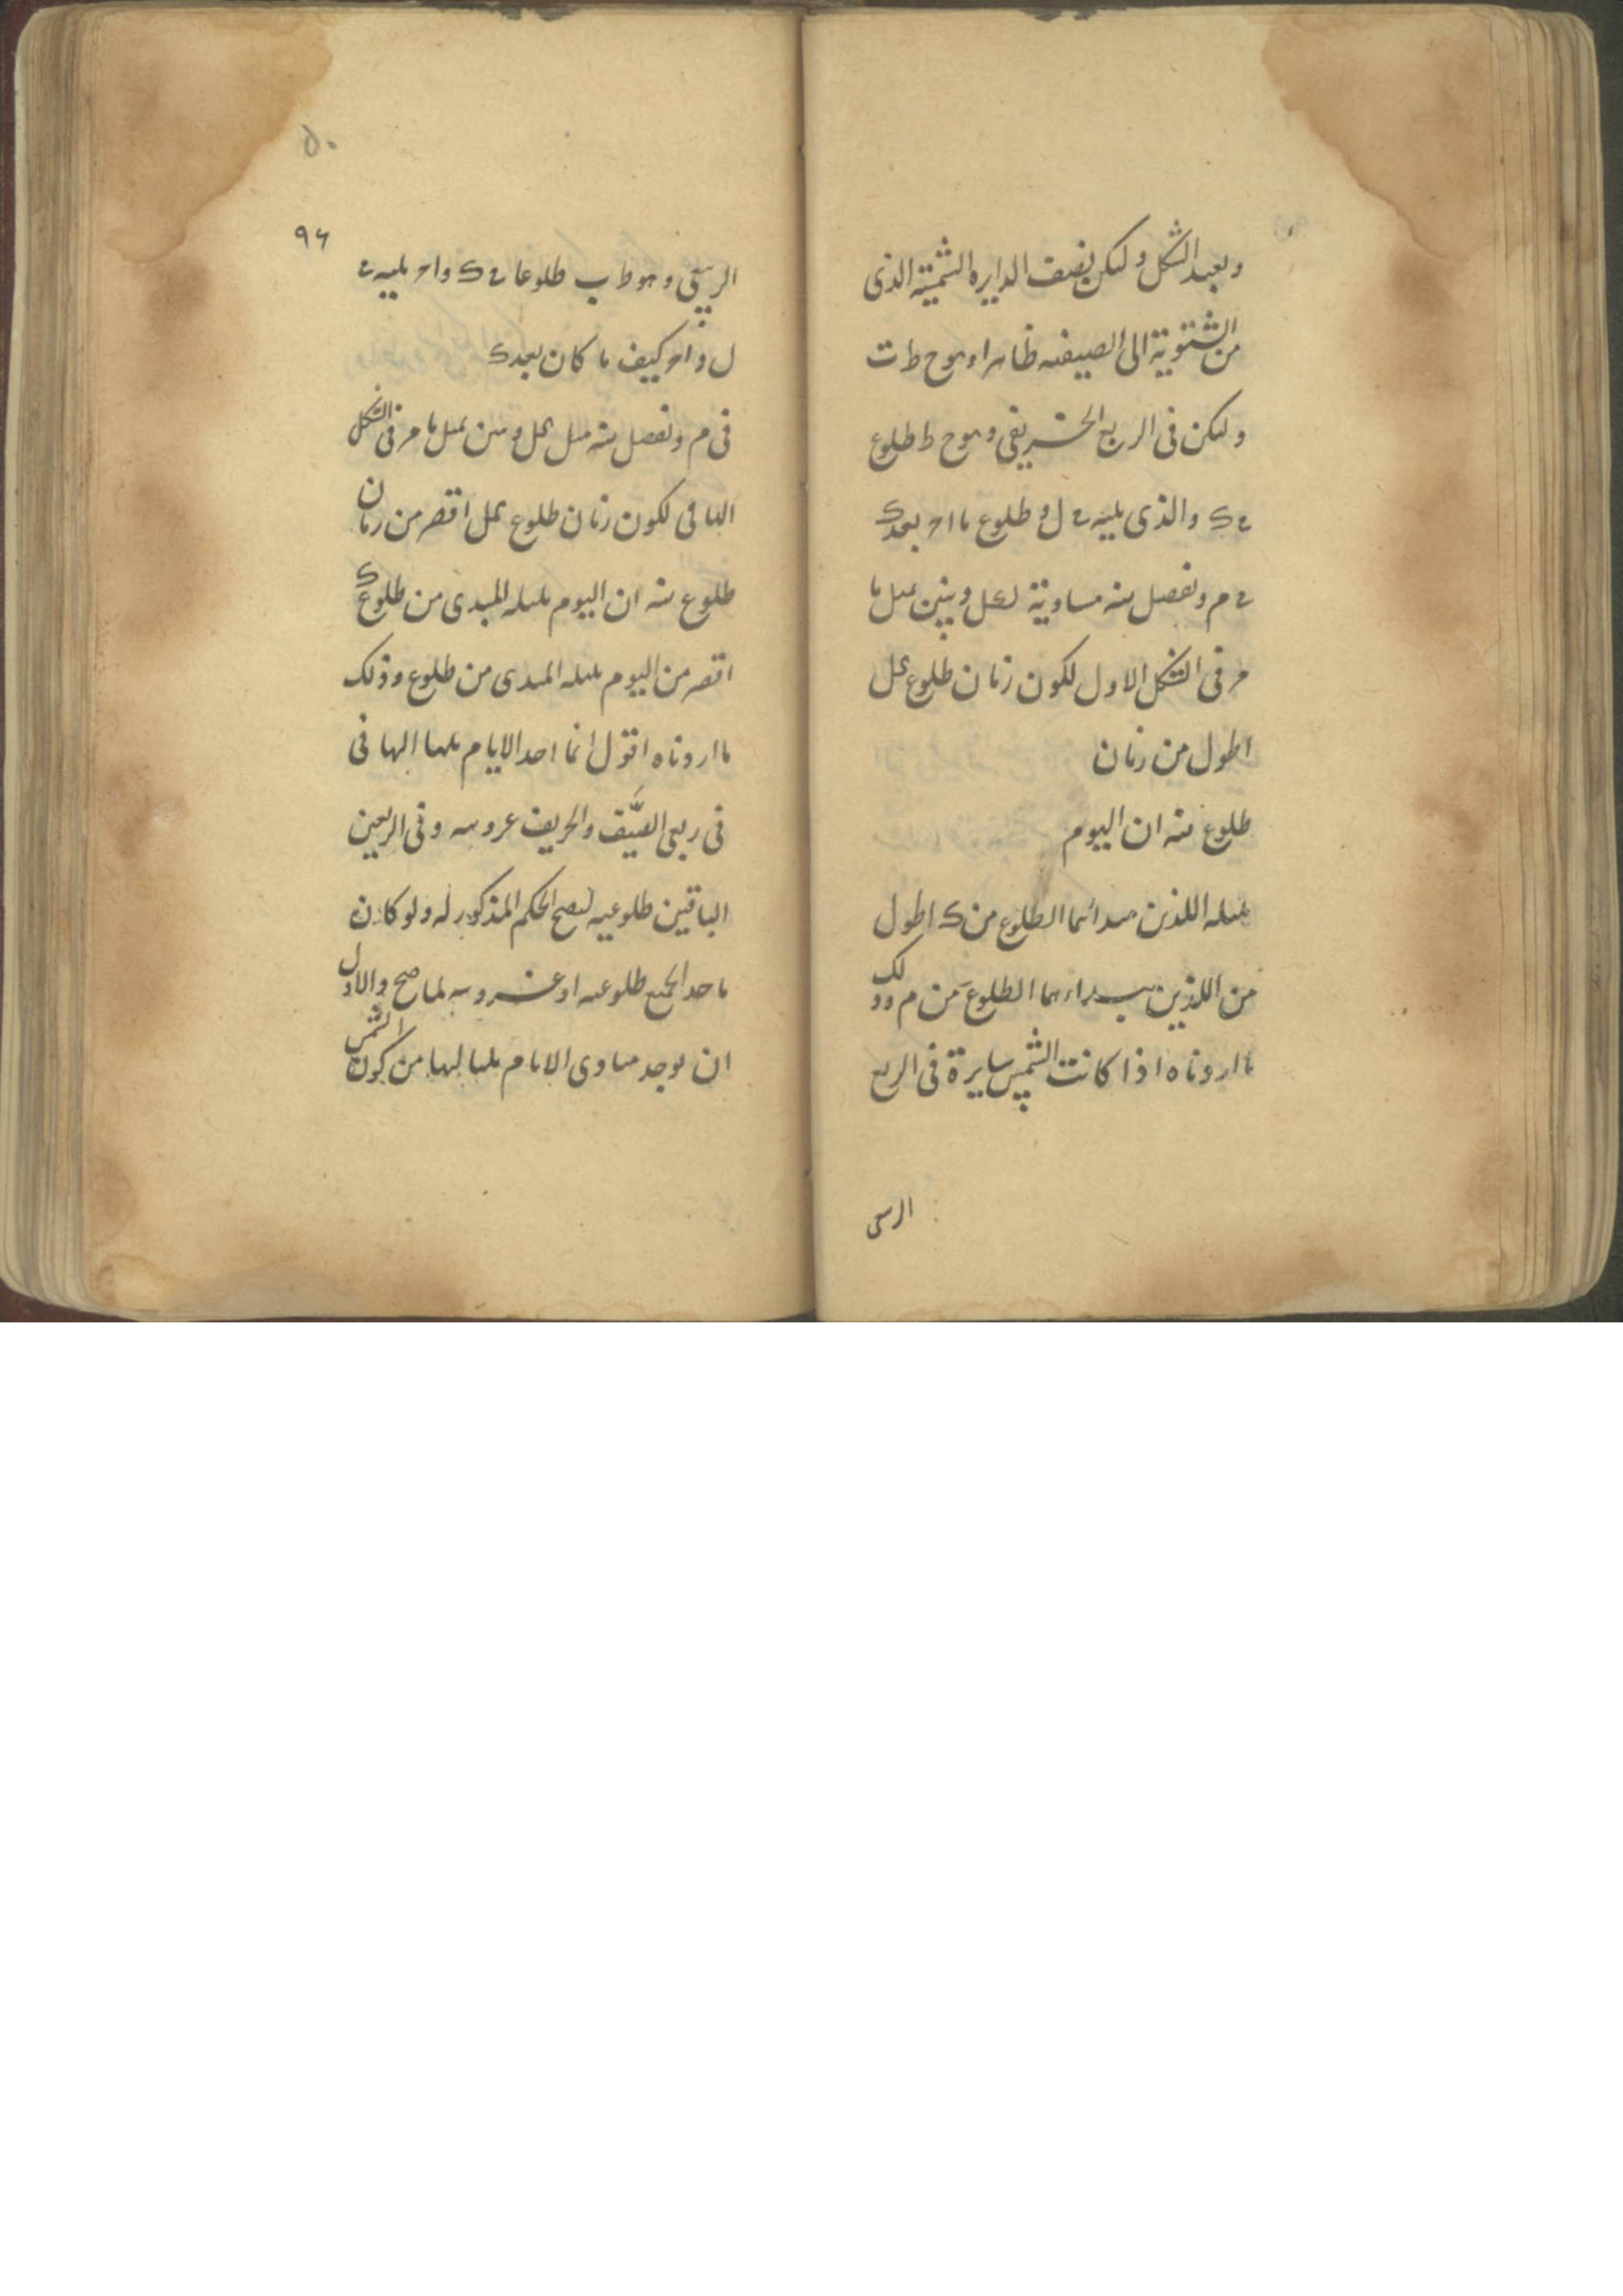 ونعيد الشكل وليكن نصف الدايره الشمسية الذى
من الشتوية الى الصيفيه ظاهرا وهو ح ط ت
وليكن فى الربع الخريفى وهو ح ط طلوع
ے ک والذى يليه ے ل و طلوع ما ا ح بعد ک
ے م ونفصل سه مساوية لعل ونبين بمثل ما
مر فى الشكل الاول لكون زمان طلوع عل
اطول من زمان
طلوع سه ان اليوم
بليله اللذين مبدائهما الطلوع من ک اطول
من اللذين مبداءهما الطلوع من م وذلك
ما اردناه اذا كانت الشمس سايرة فى الربع
الرسعى
۵۰
۹۶
الربيعى وهو ط ب طلوعا ے ک و ا ح يليه ے
ل و ا ح كيف ما كان بعد ک
فى م ونفصل سه مثل عل ونبين بمثل ما مر فى الشكل
الباقى لكون زمان طلوع عل اقصر من زمان
طلوع سه ان اليوم بليله المبدى من طلوع ک
اقصر من اليوم بليله المبدى من طلوع وذلك
ما اردناه اقول انما احد الايام بلياليها فى
فى ربعى الصيف والخريف غروبيه وفى الربعين
الباقين طلوعيه ليصح الحكم المذكور له ولو كان
ماخد الجميع طلوعيه او غروبيه لما صح والاول
ان يوجد مبادى الايام بلياليها من كون الشمس